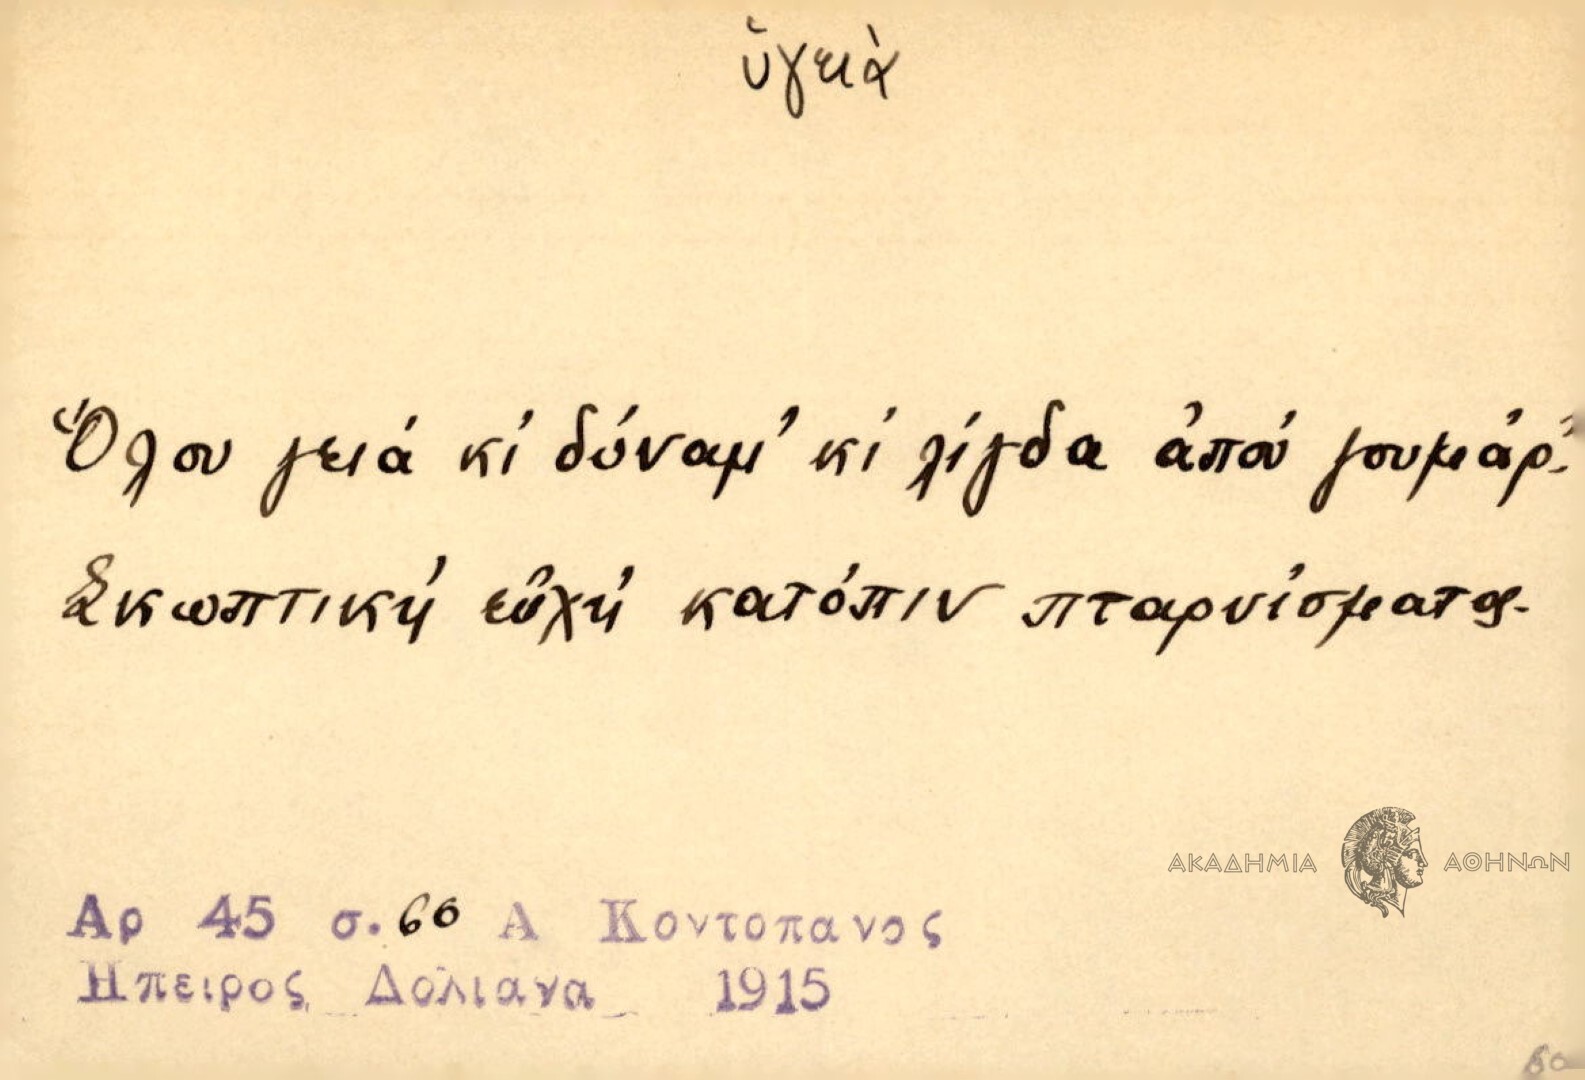 ὑγειὰ
Ὅλου γειά κί δύναμ' κί λίγδα ἀπού γουμάρ'.
Σκωπτική εὐχή κατόπιν πταρνίσματος.
ΑΚΑΔΗΜΙΑ ΑΘΗΝΩΝ
Αρ 45 σ. 60 Α Κοντοπανος
Ηπειρος Δολιανα 1915
60